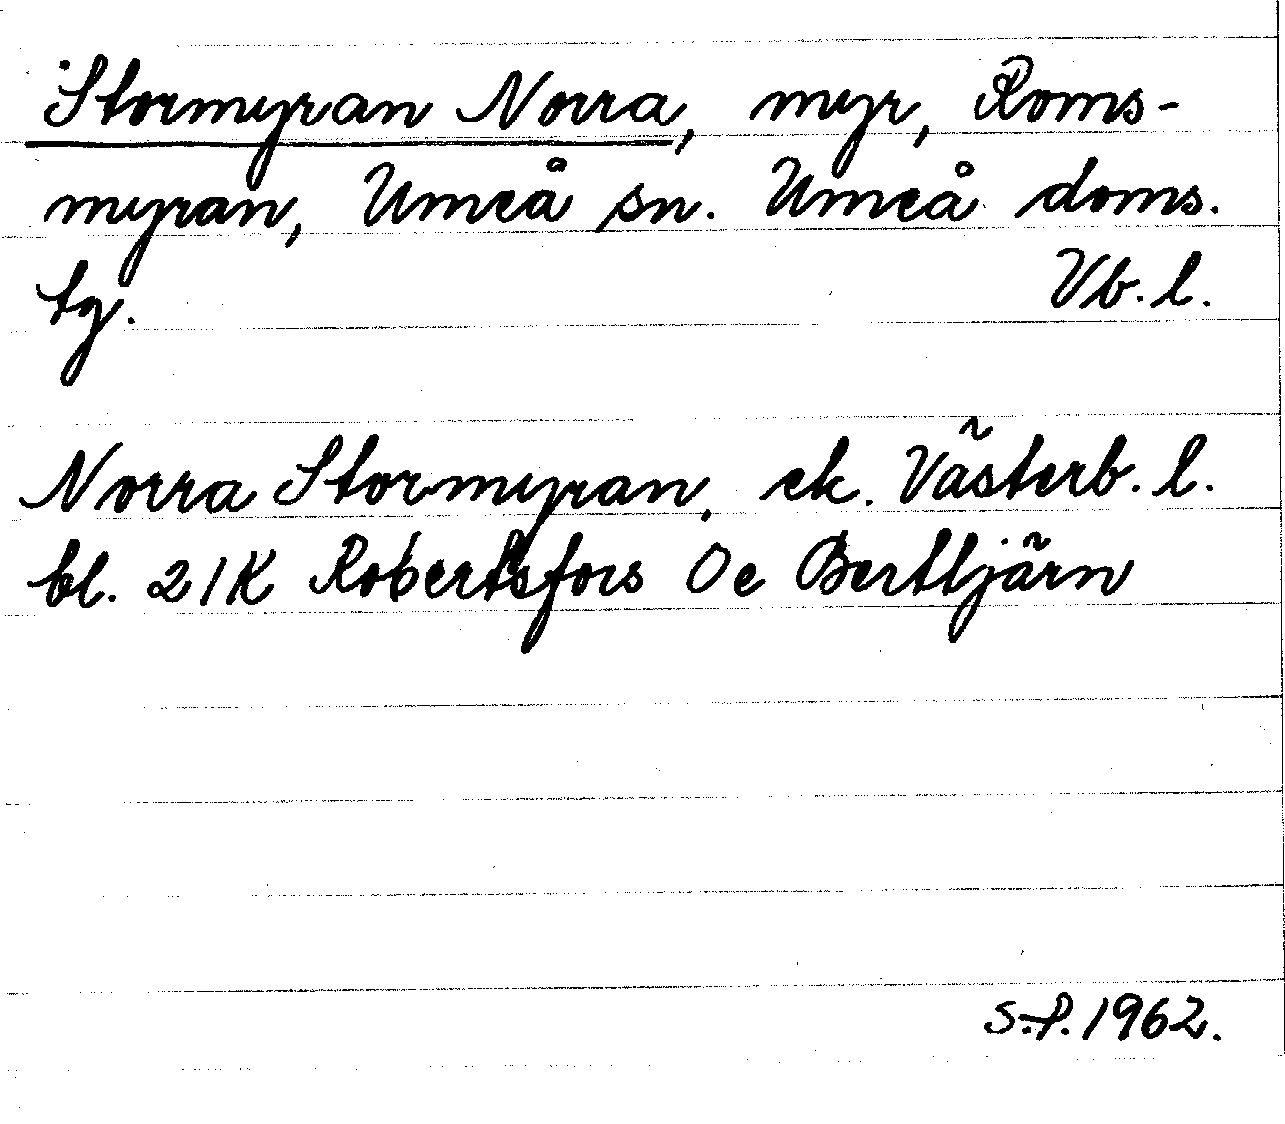 Stormyran Norra, myr, Roms-
myran, Umeå sn. Umeå doms.
tg. Vb. l.
Norra Stormyran, ek. Västerb. l.
bl. 21K Robertsfors Oe Bertljärn
S.P. 1962.